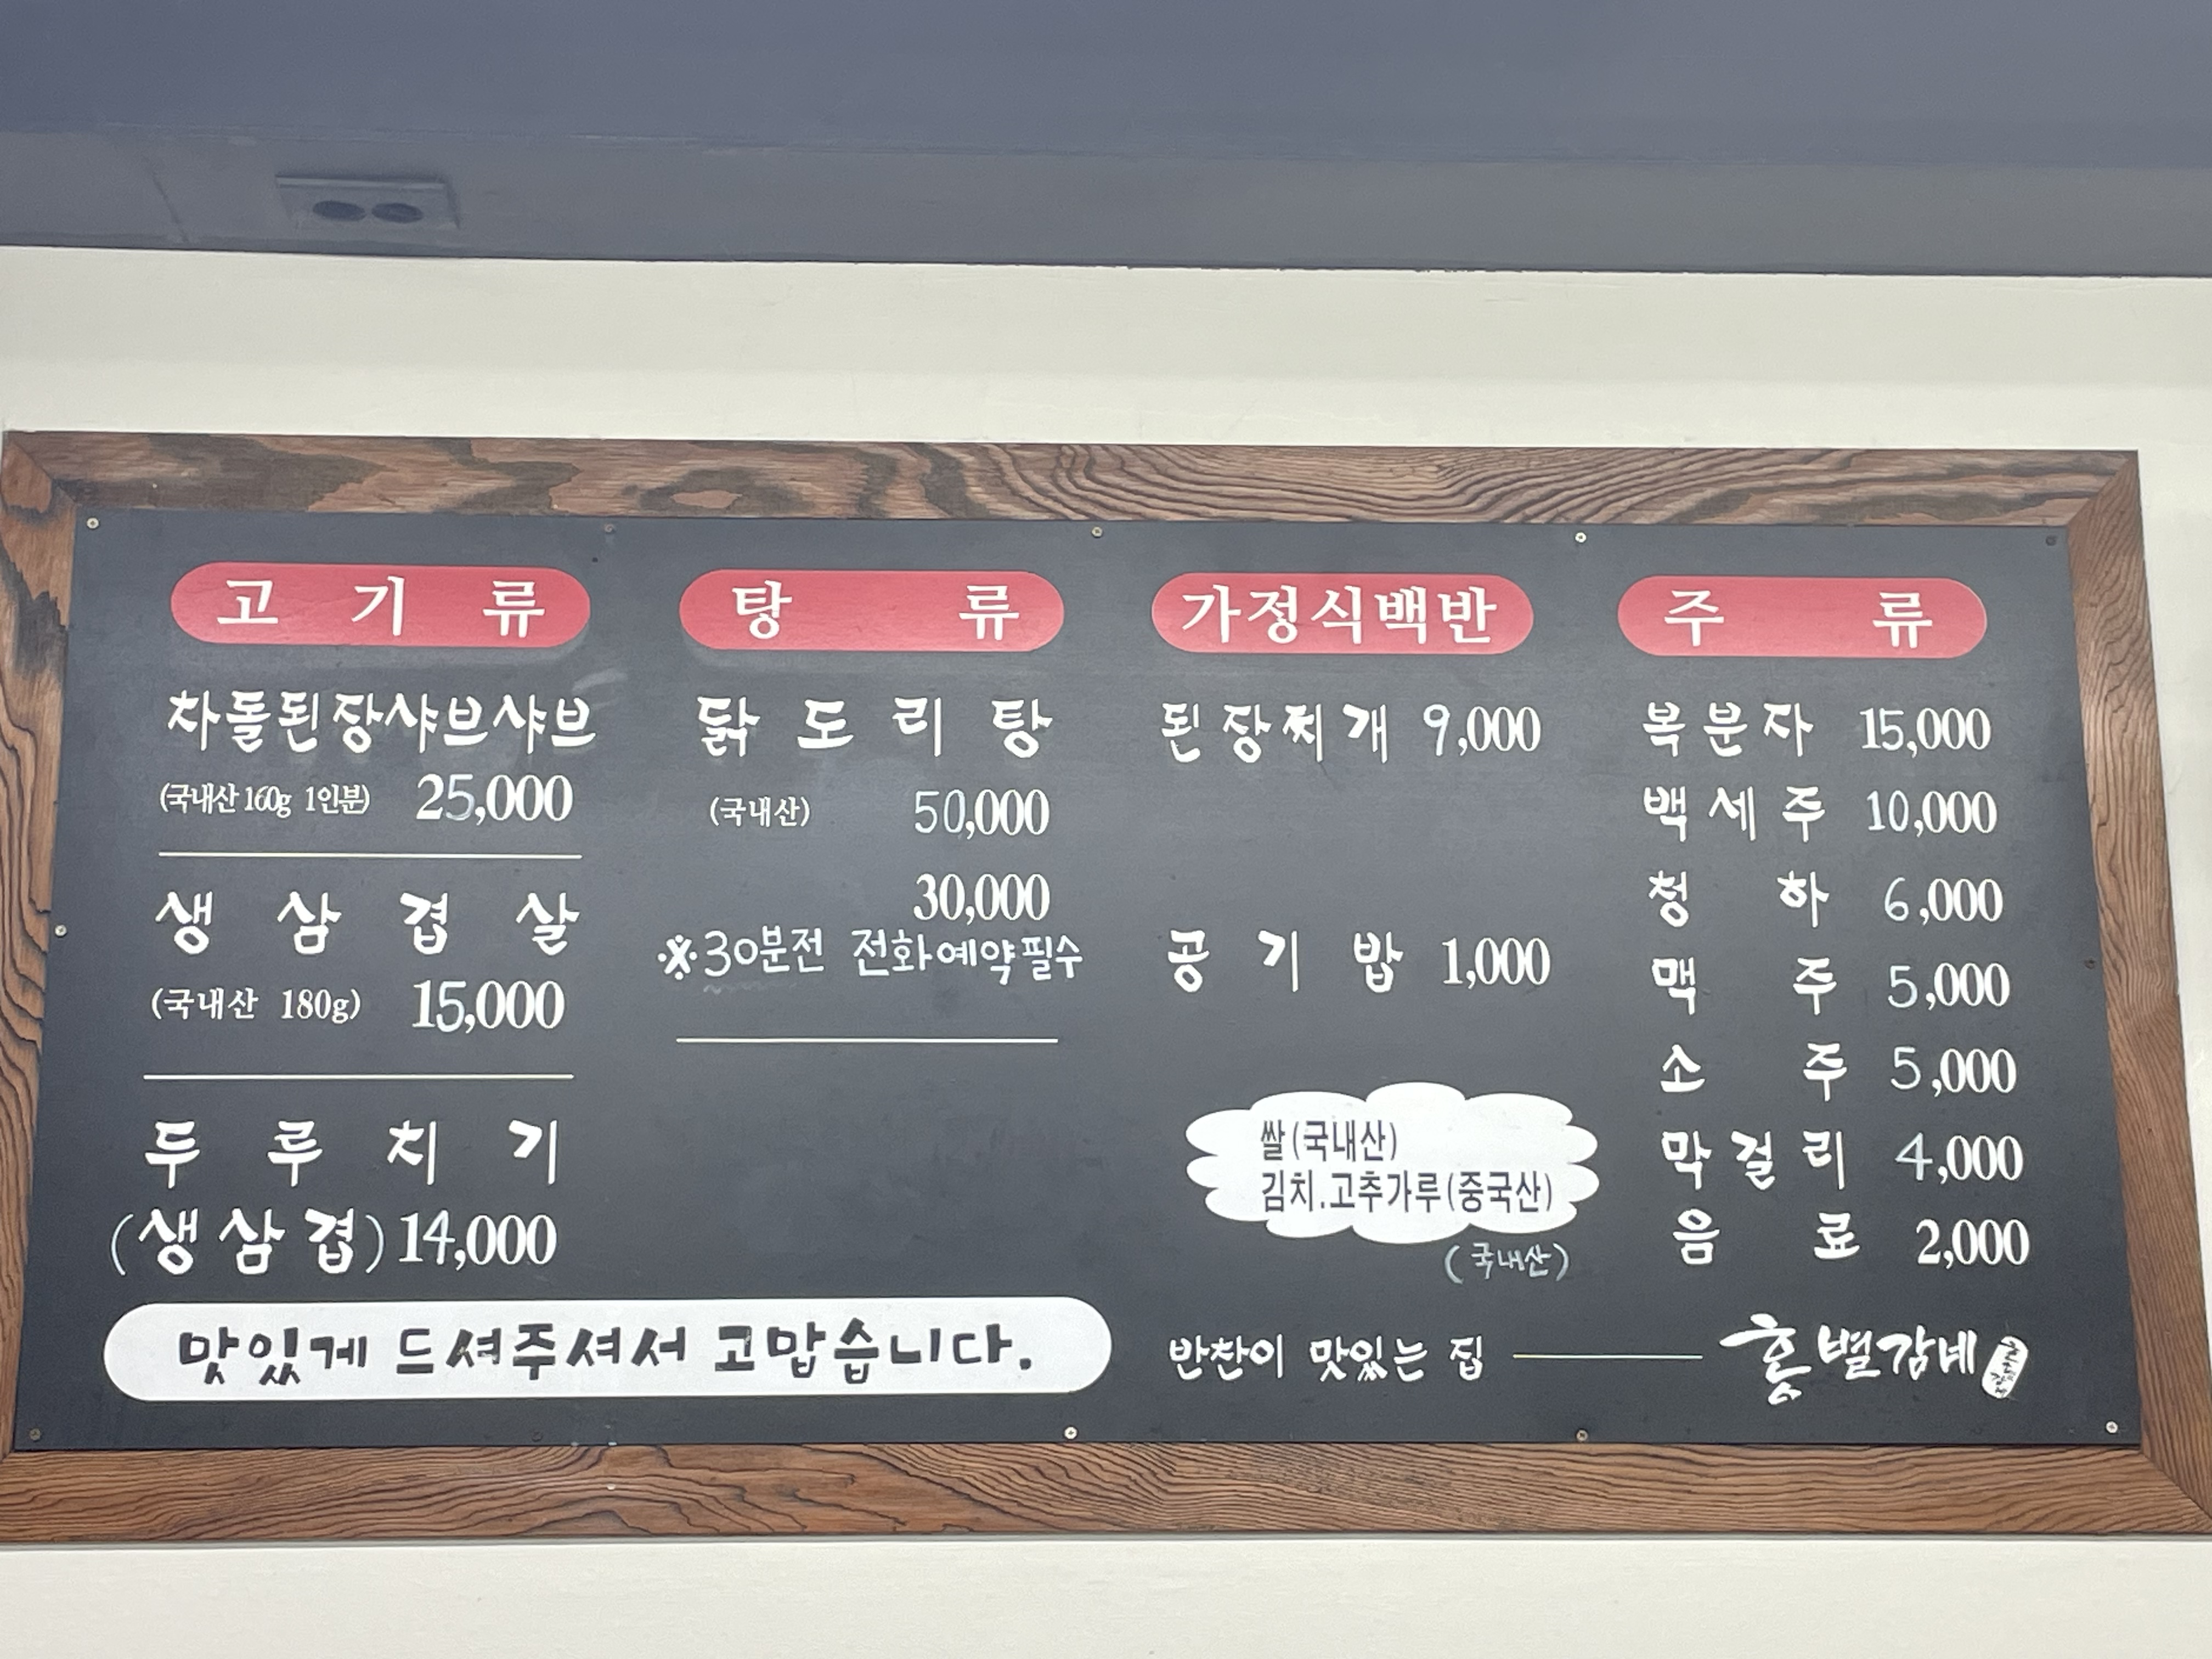 고기류
차돌된장샤브샤브
(국내산 160g 1인분) 25,000
생삼겹살
(국내산 180g) 15,000
두루치기
(생삼겹) 14,000
탕류
닭도리탕
(국내산) 50,000
30,000
※30분전 전화예약필수
가정식백반
된장찌개 9,000
공기밥 1,000
쌀(국내산)
김치.고추가루(중국산)
(국내산)
주류
복분자 15,000
백세주 10,000
청하 6,000
맥주 5,000
소주 5,000
막걸리 4,000
음료 2,000
맛있게 드셔주셔서 고맙습니다.
반찬이 맛있는 집 홍별감네